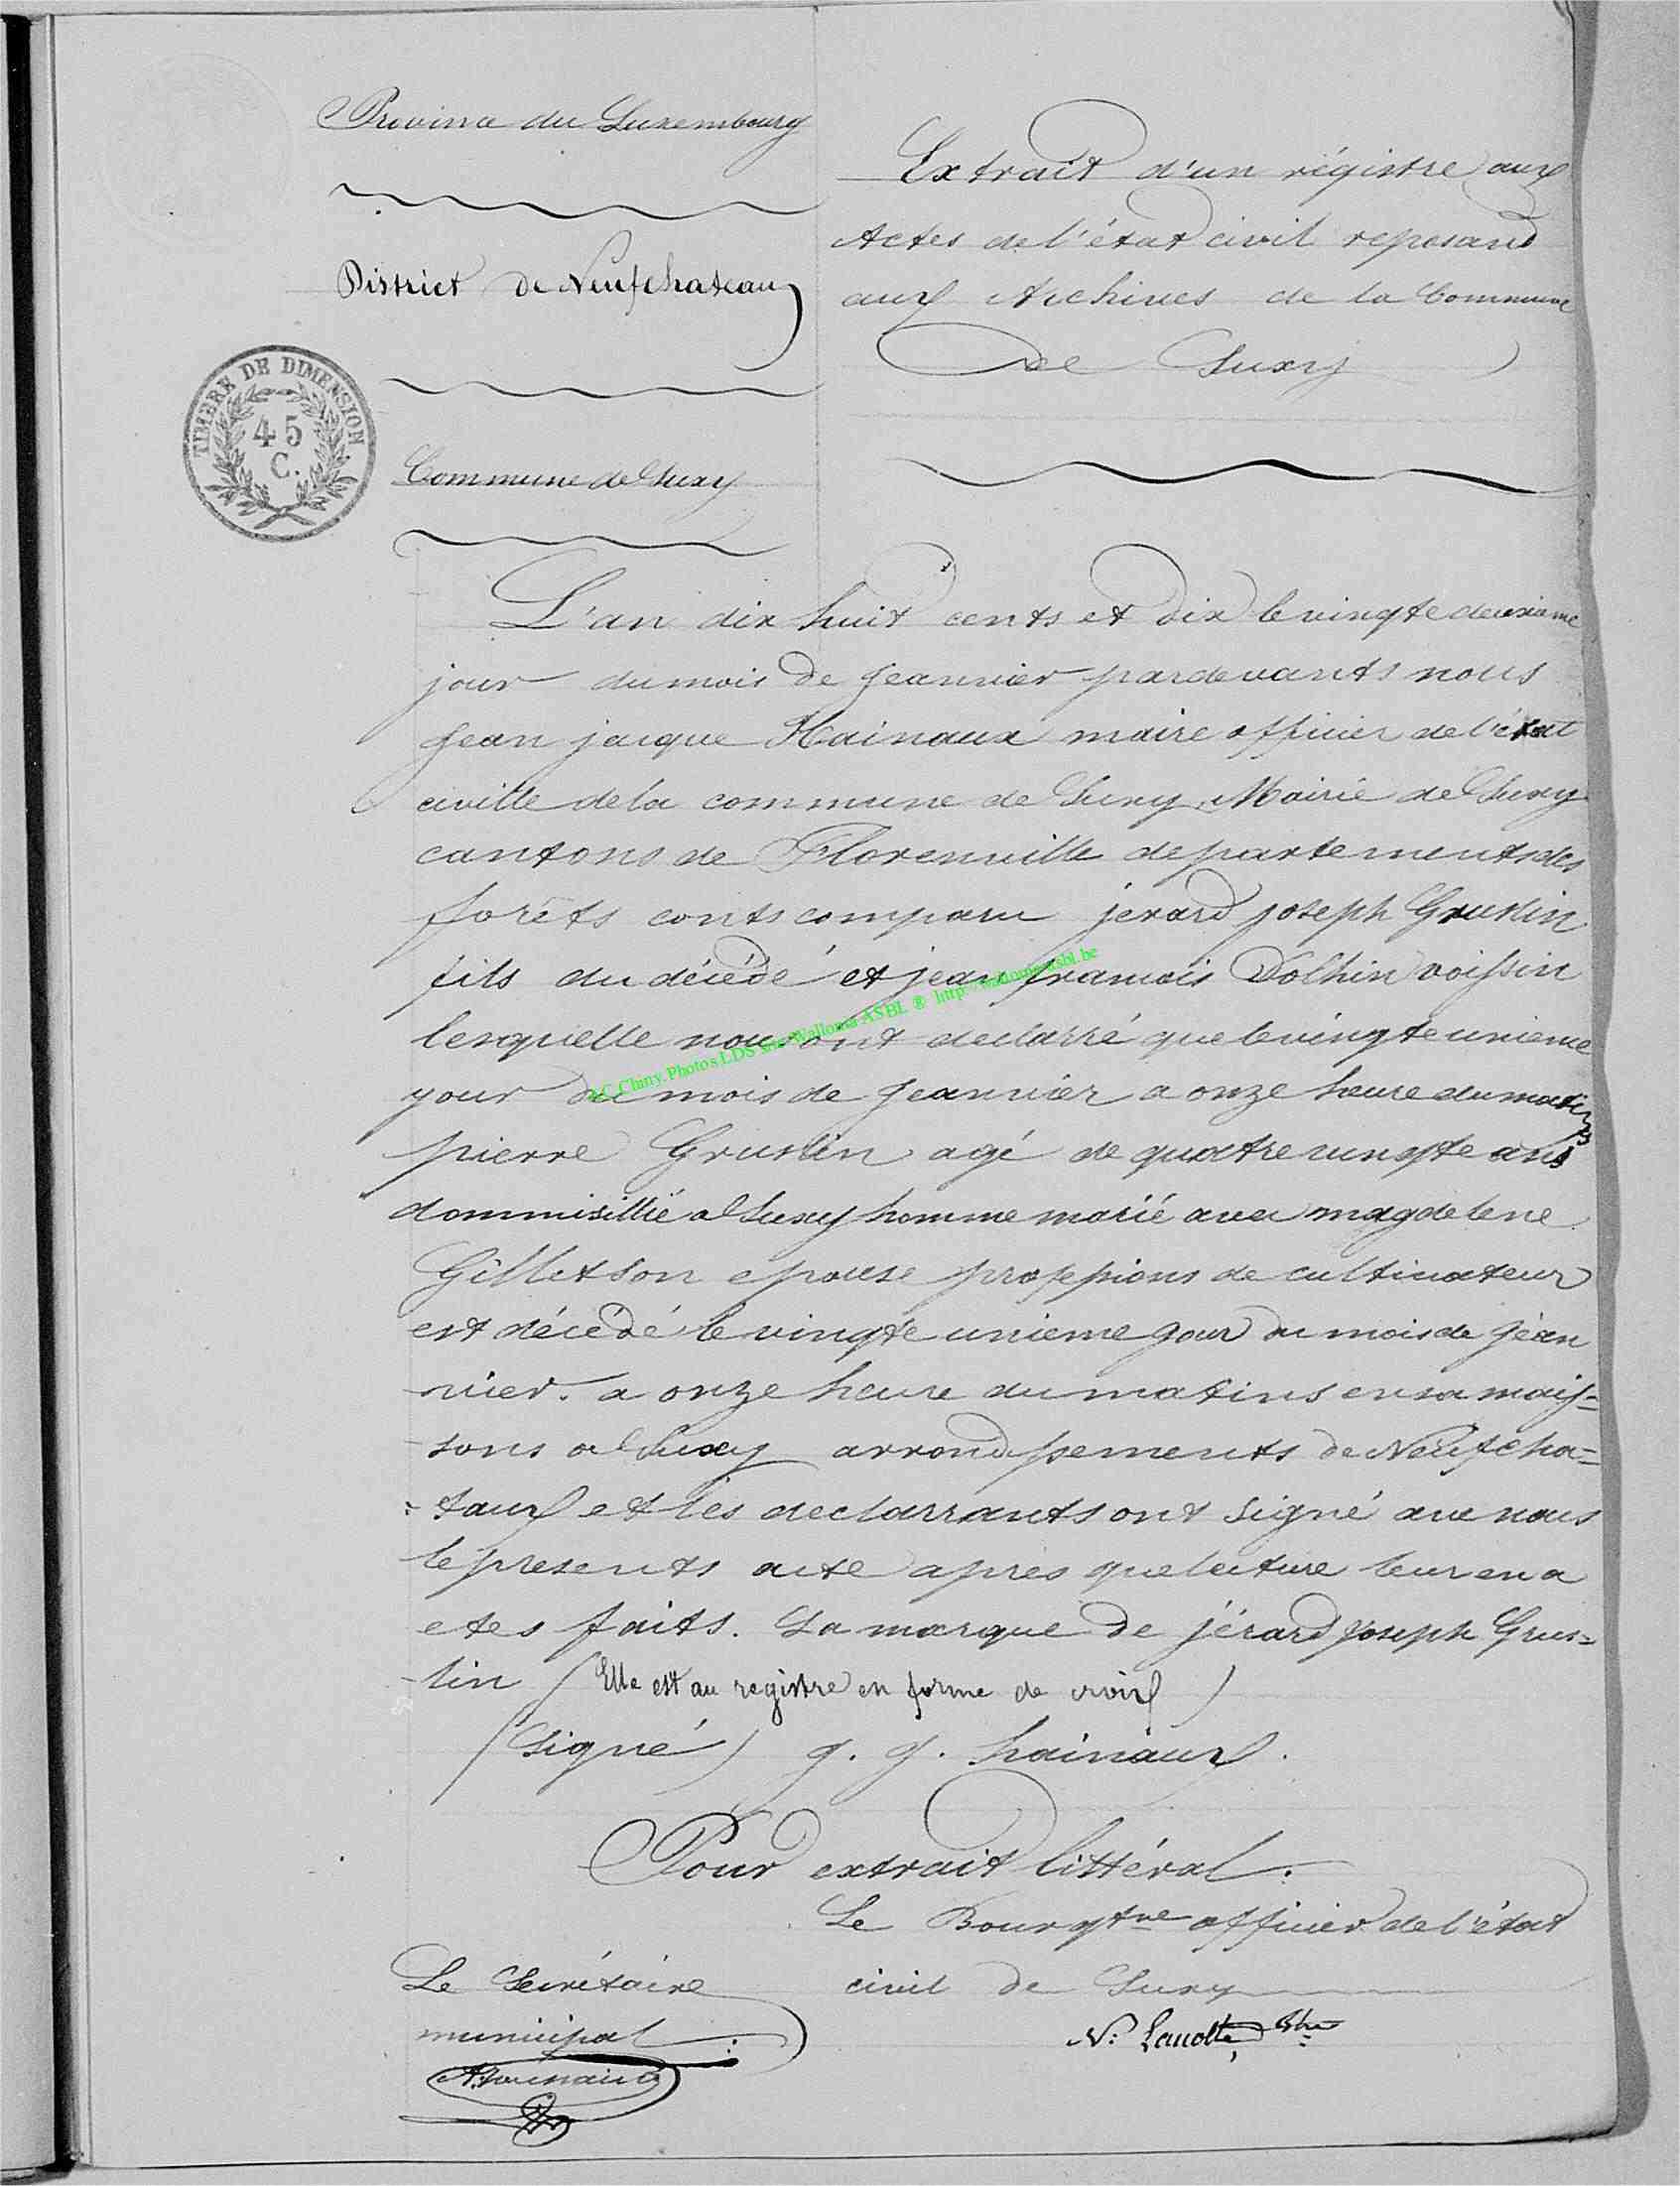 Province du Luxembourg
District de Neufchateau
TIMBRE DE DIMENSION.
45
C.
Commune de Suxy
Extrait d'un régistre aux
Actes de l'état civil reposand
aux Archives de la Commune
de Suxy
L'an dix huit cents et dix le vingte deuxieme
jour du mois de jeanvier pardevants nous
jean jacque Hainaux maire officier de l'état
civille de la commune de Suxy, Mairie de Suxy
cantons de Florenville departements des
forêts conts comparu jérard joseph Gruslin
fils du décédé et jean francois Dolhin voissin
lesquelle nous ont declarré que le vingte unieme
your du mois de jeanvier a onze heure du matins
pierre Gruslin agé de quatre vingte ans
dommisillié a Suxy homme marié avec magdelene
Gillet son epouse professions de cultivateur
est décédé le vingte unieme jour du mois de jéan
nier. a onze heure du matins en sa mais=
sons a Suxy arrondissements de Neufcha=
taux et les declarrants ont signé ave nous
le presents acte apres que lecture leur en a
etes faits. La marque de jérard joseph Grus=
lin (Elle est au registre en forme de croix)
(Signé) J. J. hainaux.
Pour extrait littéral.
Le Bourgtre officier de l'état
civil de Suxy
Le Secrétaire
municipal
AC Chiny. Photos LDS sur Wallonia ASBL ® http: